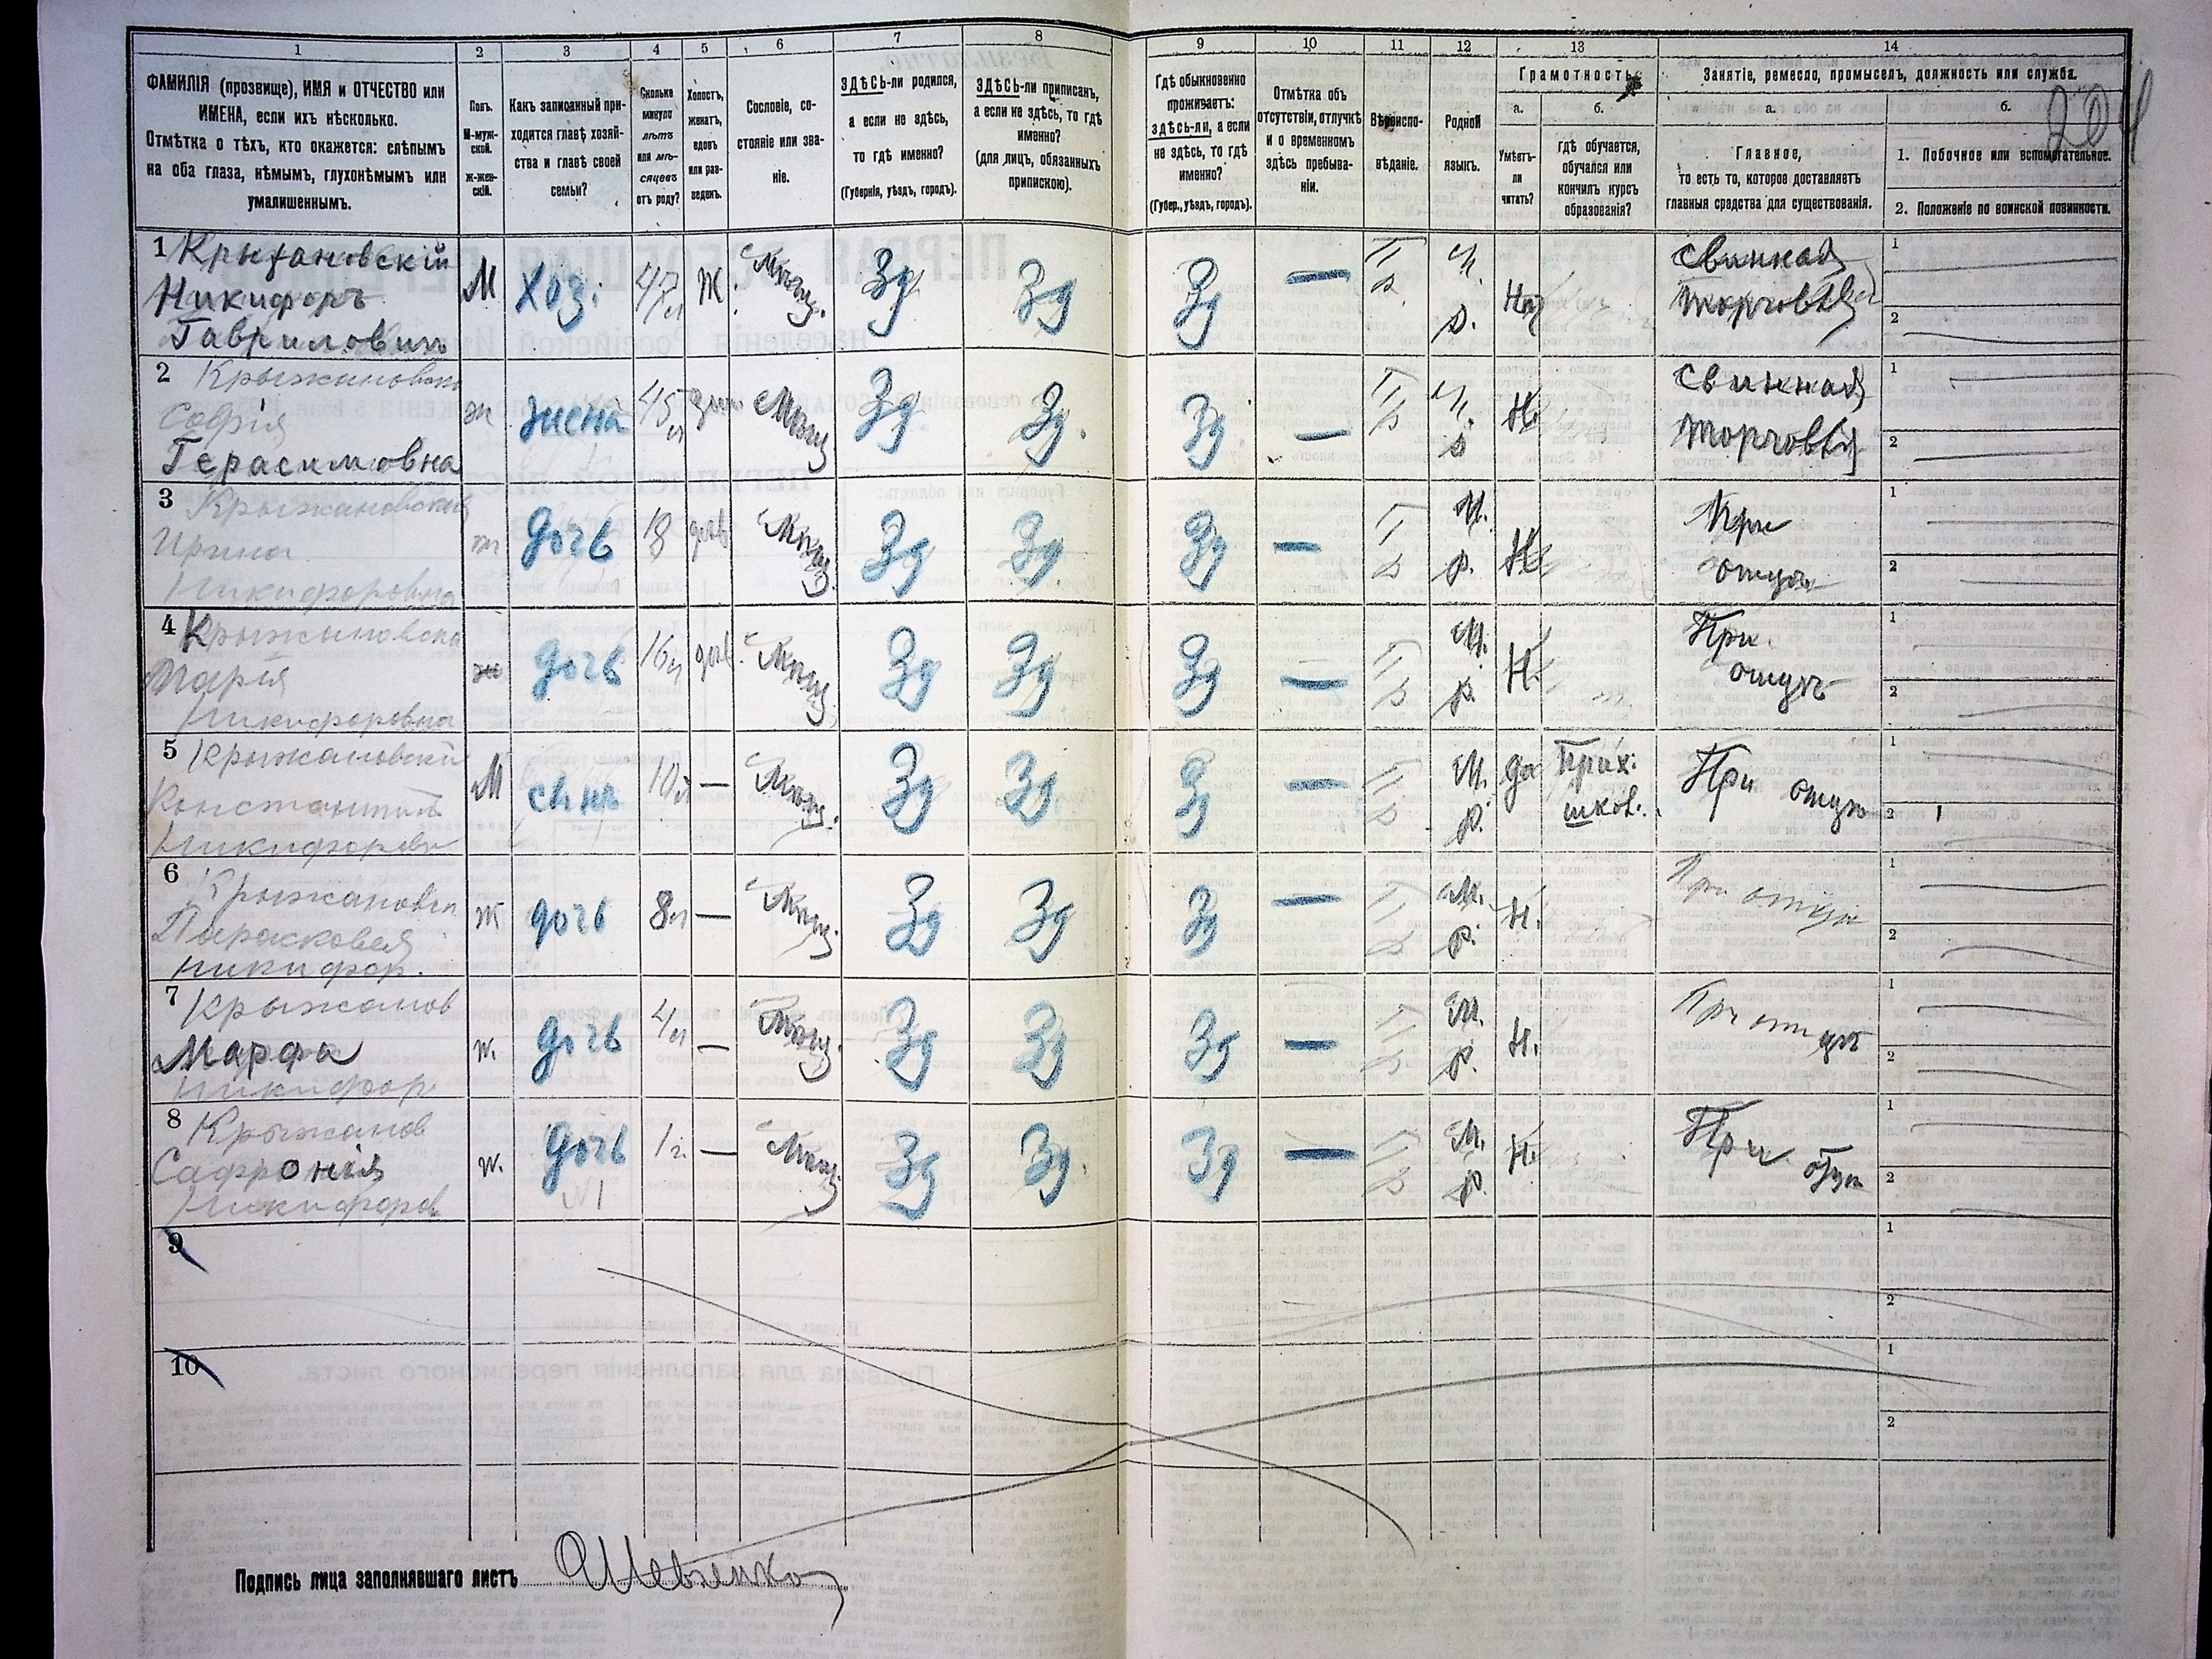 1 2 3 4 5 6 7 8 9 10 11 12 13 14
ФАМИЛІЯ (прозвище), ИМЯ и ОТЧЕСТВО или
ИМЕНА, если ихъ нѣсколько.
Отмѣтка о тѣхъ, кто окажется: слѣпымъ
на оба глаза, нѣмымъ, глухонѣмымъ или
умалишеннымъ.
Полъ.
М-муж-
ской.
ж-жен-
скій.
Какъ записанный при-
ходится главѣ хозяй-
ства и главѣ своей
семьи?
Сколько
минуло
лѣтъ
или мѣ-
сяцевъ
отъ роду?
Холостъ,
женатъ,
вдовъ
или раз-
веденъ.
Сословіе, со-
стояніе или зва-
ніе.
ЗДѢСЬ-ли родился,
а если не здѣсь,
то гдѣ именно?
(Губернія, уѣздъ, городъ).
ЗДѢСЬ-ли приписанъ,
а если не здѣсь, то гдѣ
именно?
(для лицъ, обязанныхъ
припискою).
Гдѣ обыкновенно
проживаетъ:
здѣсь-ли, а если
не здѣсь, то гдѣ
именно?
(Губер., уѣздъ, городъ).
Отмѣтка объ
отсутствіи, отлучкѣ
и о временномъ
здѣсь пребыва-
ніи.
Вѣроиспо-
вѣданіе.
Родной
языкъ.
Грамотность.
а. б.
Умѣетъ-
ли
читать?
гдѣ обучается,
обучался или
кончилъ курсъ
образованія?
Занятіе, ремесло, промыселъ, должность или служба.
а. б.
Главное,
то есть то, которое доставляетъ
главныя средства для существованія.
1. Побочное или вспомогательное.
2. Положеніе по воинской повинности.
204
1 Крыжановскій
Никифоръ
Гавриловичъ
М Хоз: 47 л Ж Мѣщ. Зд Зд Зд — П р. М. р. Нѣ
свинная
торговля
1
2
2 Крыжановска
Софія
Герасимовна
ж жена 45 л зам Мѣщ Зд Зд. Зд — П р М. р Н
свинная
торговля
1
2
3 Крыжановская
Ирина
Никифоровна
ж дочь 18 дѣв Мѣщ Зд Зд Зд — П р М. р. Н
При
отцѣ
1
2
4 Крыжановска
Марія
Никифоровна
ж дочь 16 л дѣв. Мѣщ. Зд Зд Зд — П р М. р. Н.
При
отцѣ
1
2
5 Крыжановскій
Константинъ
Никифоров
М сынъ 10 л — Мѣщ. Зд Зд Зд — П р М. р. да Прих:
школ.
При отцѣ
1
2
6 Крыжановск
Парасковея
никифор.
ж дочь 8 л — Мѣщ. Зд Зд Зд — П р М. р. Н.
При отцѣ
1
2
7 Крыжанов
Марфа
Никифор
ж. дочь 4 л — Мѣщ. Зд Зд Зд — П р М. р. Н.
При отцѣ
1
2
8 Крыжанов
Сафронія
Никифоров
ж. дочь 1 г. — Мѣщ Зд Зд. Зд — П р М. р. Н.
N 1
При отцѣ
1
2
9
1
2
10
1
2
Подпись лица заполнявшаго листъ